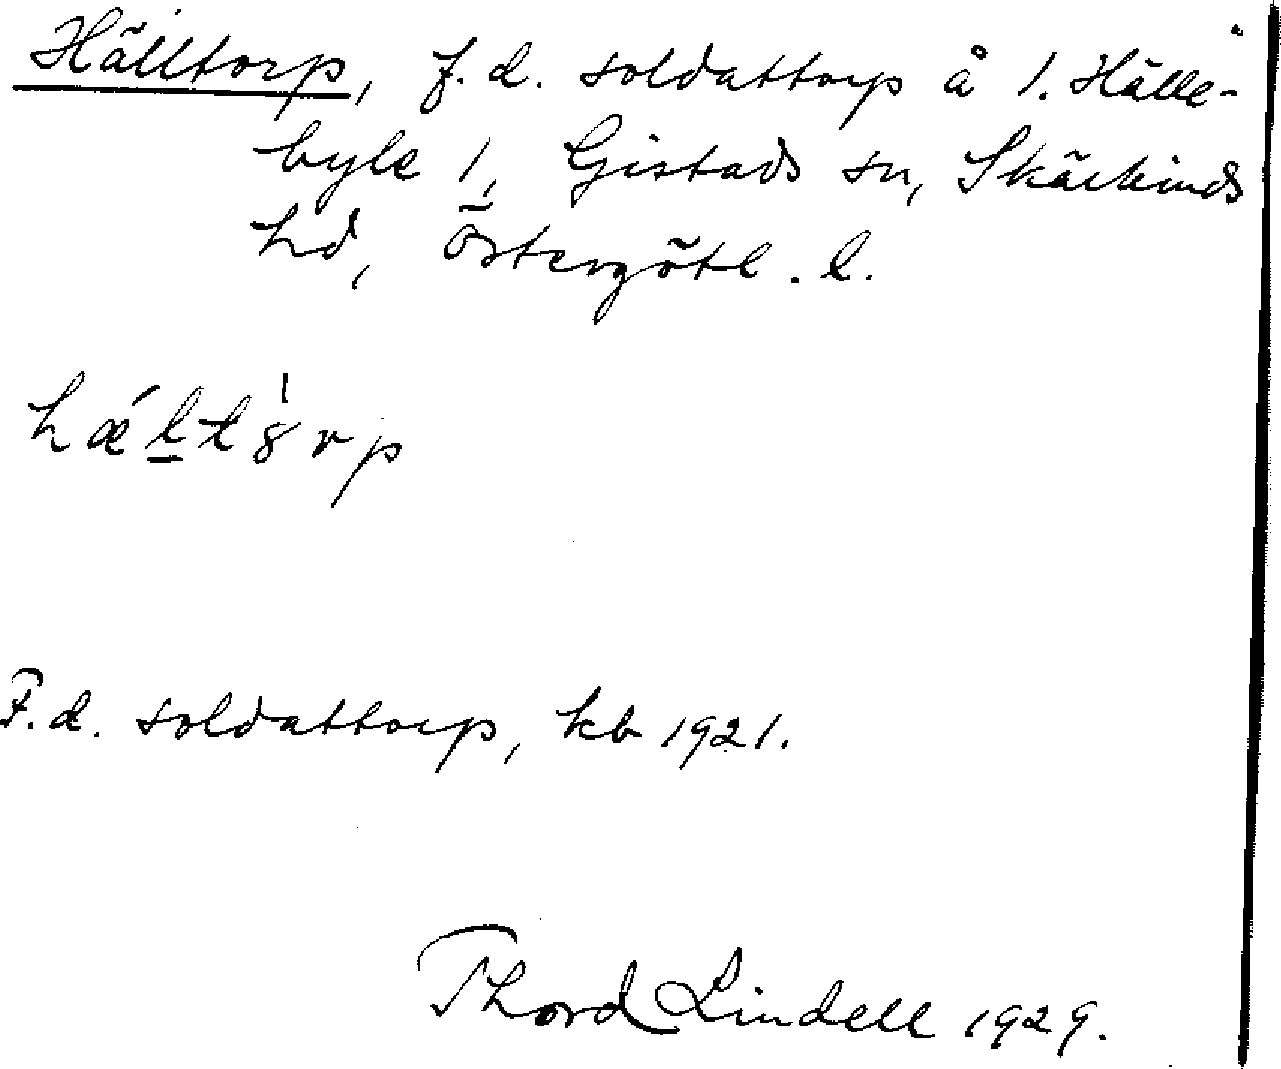 Hälltorp, f.d. soldattorp å 1. Hälle-
byle 1, Gistads sn, Skärkinds
hd, Östergötl. l.
hǽltȣ̍rp
F.d. soldattorp, kb 1921.
Thord Lindell 1929.